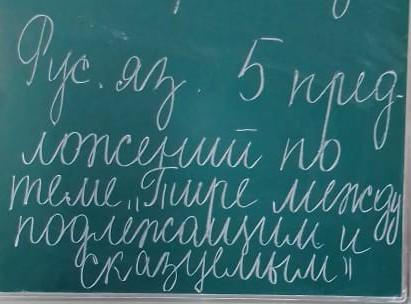 Рус. яз. 5 пред-
ложений по
теме „Тире между
подлежащим и
сказуемым"